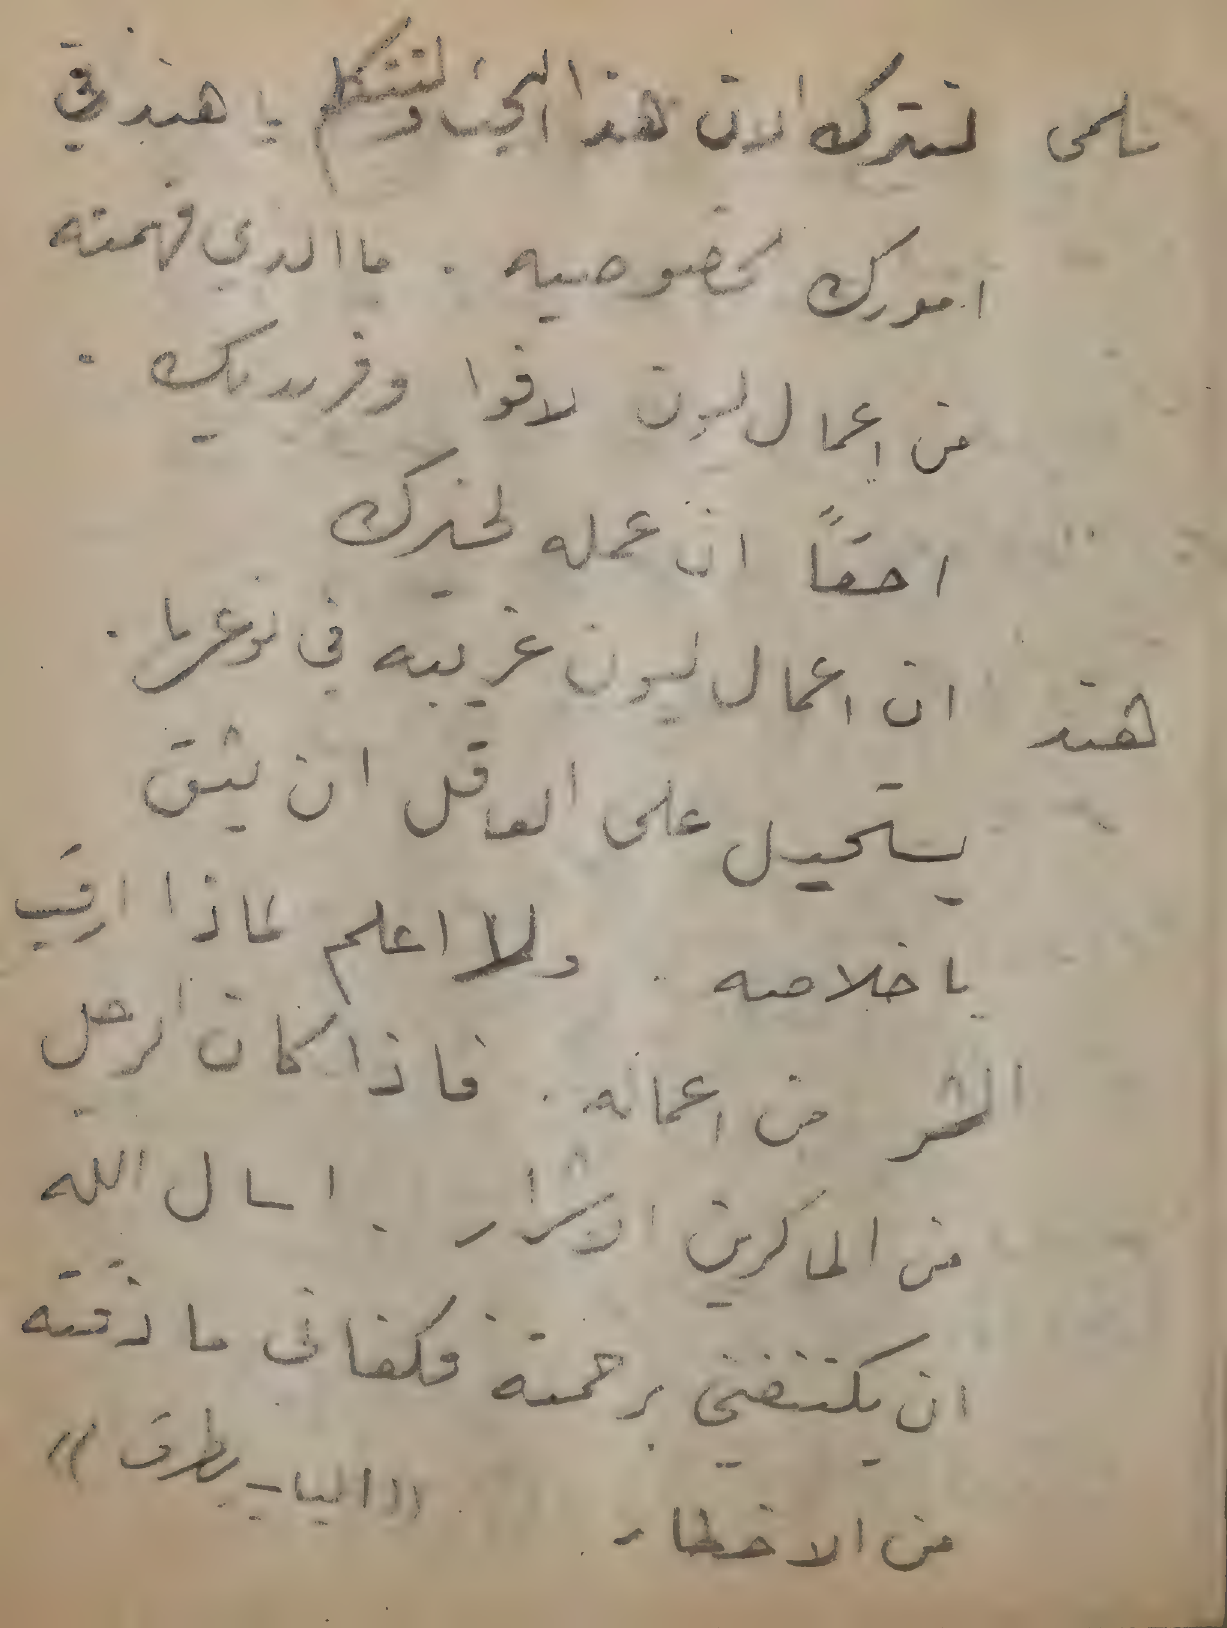 سلمى لنترك الان هذا البحث ولنتكلم يا هند في
امورك الخصوصيه . ما الذي فهمته
من اعمال ليون لافوا وفردريك .
احقاً ان عمله لخيرك
هند ان اعمال ليون غريبه في نوعها .
يستحيل على العاقل ان يثق
باخلاصه . ولا اعلم لماذا ارقب
الشر من اعماله . فاذا كان الرجل
من الماكرين الاشرار . اسال الله
ان يكتنفني برحمته فكفاني ما ذقته
من الاخطار ((الباب يطرق))